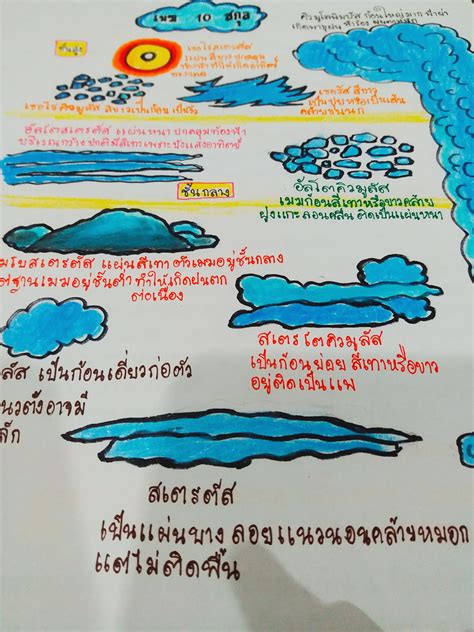 เมฆ 10 ชกุล
คิวมูโลนิมบัส ก้อนใหญ่มาก ฟ้าผ่า
ชั้นสูง
เซอโรสเตรตัส
แผ่นสีขาวปกคลุม
เซอโรคิวมูลัส สีขาวเป็นก้อน เป็นริ้ว
เซอรัส สีขาว
เป็นปุยหรือเป็นเส้น
คล้ายขนนก
อัลโตสเตรตัส แผ่นหนา ปกคลุมท้องฟ้า
บริเวณกว้าง ปกติมีสีเทาเพราะบังแสงอาทิตย์
ชั้นกลาง
อัลโตคิวมูลัส
เมฆก้อนสีเทาหรือขาวคล้าย
ฝูงแกะ ลอนคลื่น ติดเป็นแผ่นหนา
มโบสเตรตัส แผ่นสีเทา ตัวเมฆอยู่ชั้นกลาง
ฐานเมฆอยู่ชั้นต่ำ ทำให้เกิดฝนตก
ต่อเนื่อง
สเตรโตคิวมูลัส
เป็นก้อนย่อย สีเทาหรือขาว
อยู่ติดเป็นแพ
ลัส เป็นก้อนเดี่ยวก่อตัว
นวตั้งอาจมี
ล็ก
สเตรตัส
เป็นแผ่นบาง ลอยแนวนอนคล้ายหมอก
แต่ไม่ติดพื้น